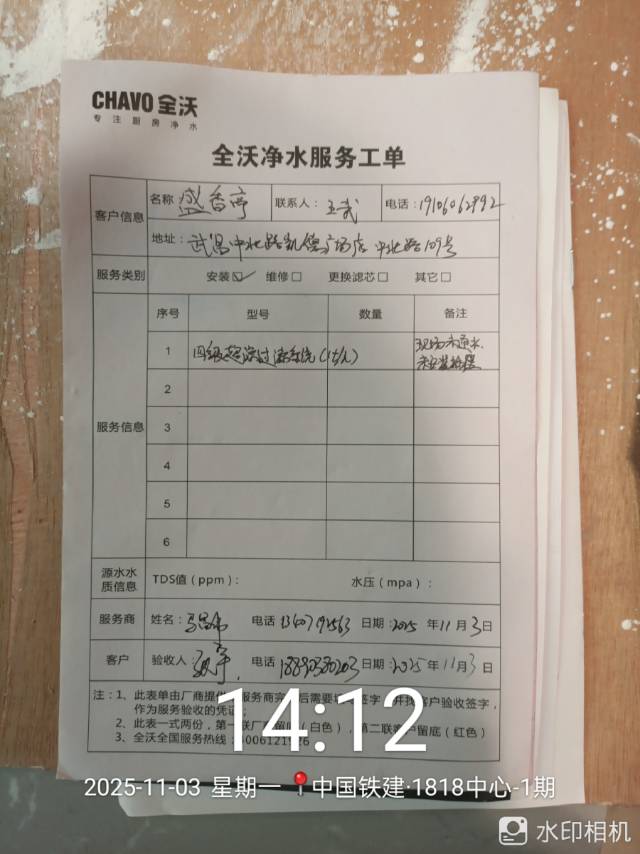 CHAVO 全沃
专注厨房净水
全沃净水服务工单
客户信息 名称 盛香亭 联系人: 王武 电话:
地址: 武昌中北路凯德广场店 中北路109号
服务类别 安装☑ 维修□ 更换滤芯□ 其它□
服务信息 序号 型号 数量 备注
1 四级超滤过滤系统(1t/h) 现场未通水、
2
3
4
5
6
源水水质信息 TDS值(ppm): 水压(mpa):
服务商 姓名: 电话 日期: 2025年11月3日
客户 验收人: 电话 日期: 2025年11月3日
注: 1、此表单由厂商提供 服务商完 后需要 签字 并找客户验收签字,
作为服务验收的凭证
2、此表一式两份, 第一联厂 留 (白色), 第二联客户留底(红色)
3、全沃全国服务热线:
14:12
2025-11-03 星期一 中国铁建·1818中心-1期
水印相机